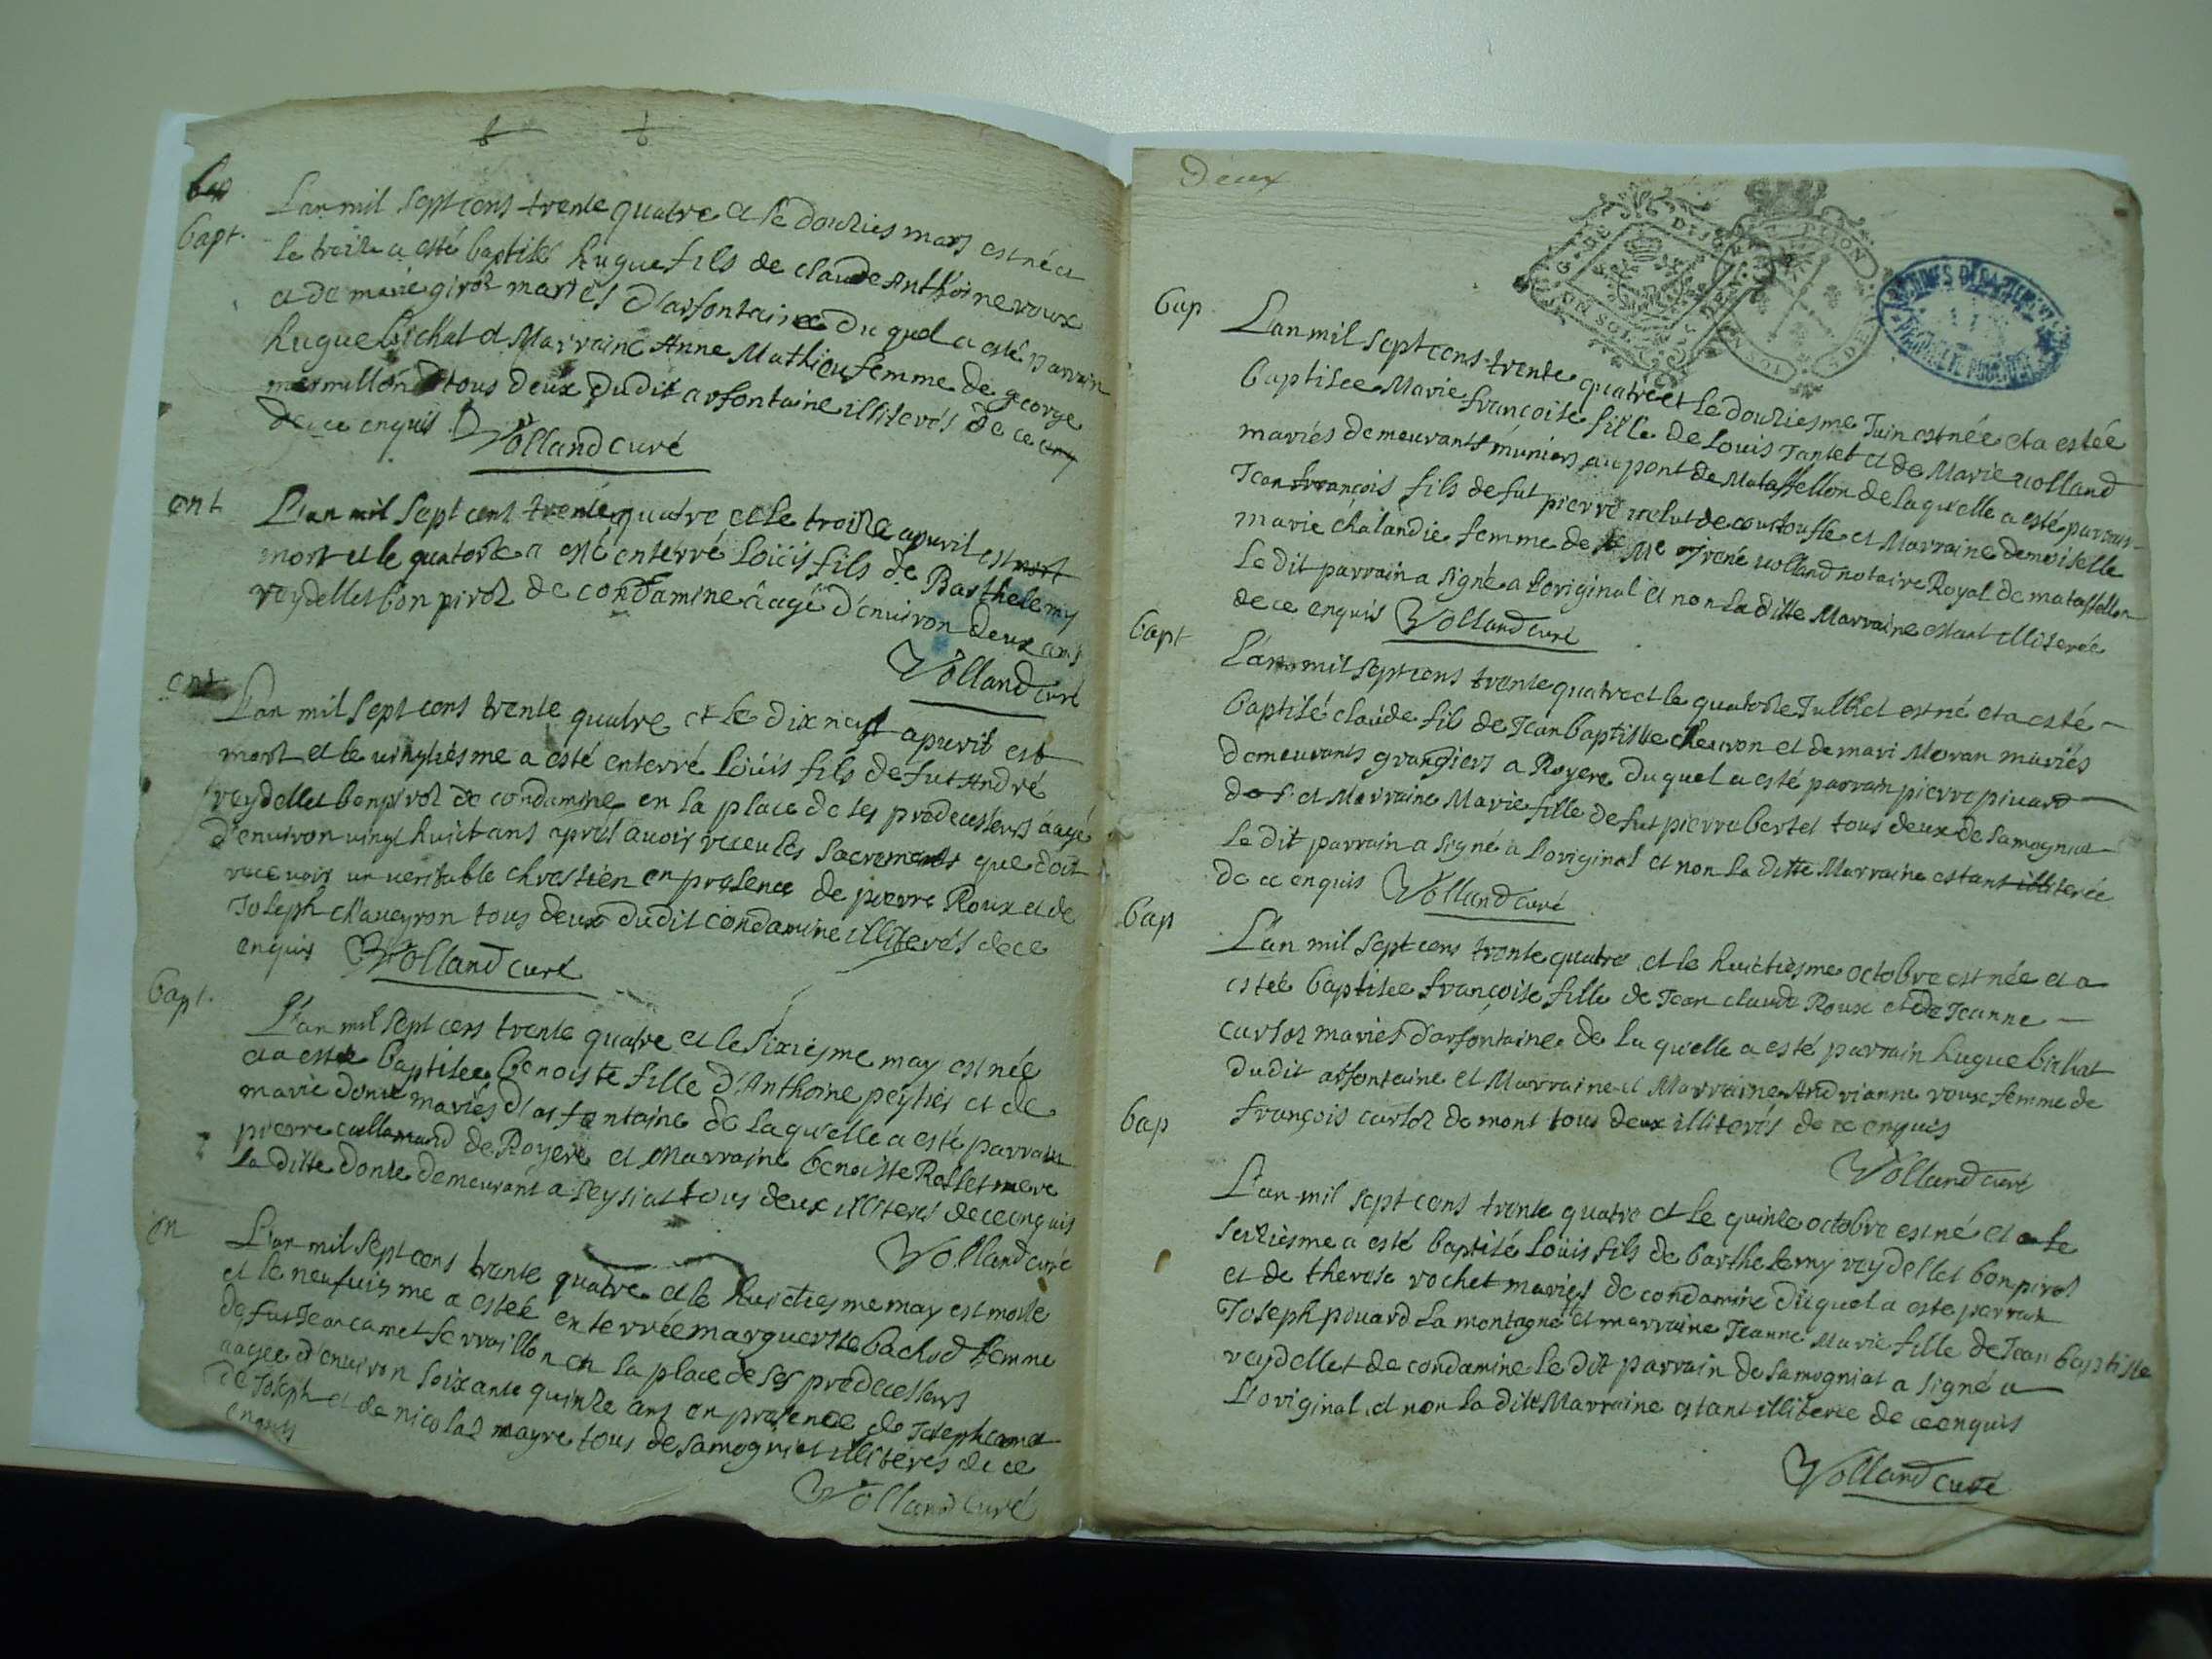 bap
bapt.
L'an mil sept cens trente quatre et le douzies mars est né et
le treize a esté baptisé hugue fils de claude Anthoine roux
et de marie giroz mariés d'arfontaine du quel a esté parrain
hugue bichat et Marraine Anne Mathieu femme de george
marmillon tous deux dudit arfontaine illiterés de ce enq
de ce enquis Volland curé
ent
L'an mil sept cens trente quatre et le troize apvril est mort
mort et le quatorze a esté enterré Loüis fils de Barthelemy
reydellet bon piroz de condamine aagé d'environ deux ans
Volland curé
ent
L'an mil sept cens trente quatre et le dix neuf apvril est
mort et le vingtiesme a esté enterré Loüis fils de fut André
reydellet bonpiroz de condamine en la place de ses predecessers aagé
d'environ vingt huict ans apres avoir receu les sacrements que doit
recevoir un veritable chrestien en presence de pierre Roux et de
Joseph chaveyron tous deux dudit condamine illiterés de ce
enquis Volland curé
bapt.
L'an mil sept cens trente quatre et le sixiesme may est née
et a estée baptisée benoiste fille d'Anthoine peytier et de
marie donte mariés d'arfontaine de laqu'elle a esté parrain
pierre cullamand de Royere et Marraine benoiste Rollet mere
la ditte donte demeurant a seysiat tous deux illiterés de ce enquis
Volland curé
en
L'an mil sept cens trente quatre et le huictiesme may est morte
et le neufviesme a estée enterrée marguerite bachod femme
de fut Jean camet serraillon en la place de ses predecessers
aagée d'environ soixante quinze ans en presence de Joseph camet
de Joseph et de nicolas mayre tous de samogniat illiterés de ce
enquis
Volland curé
Deux
DIJON
bap
L'an mil sept cens trente quatre et le douziesme Juin est née et a estée
baptisée Marie françoise fille de Louis Tantet et de Marie volland
mariés demeurants muniers au pont de Mataffellon de laqu'elle a esté parrain
Jean françois fils de fut pierre velut de courtoufle et Marraine demoiselle
marie chalandie femme de Me Irené volland notaire Royal de mataffellon
le dit parrain a signé a l'original et non la ditte Marraine estant illiterée
de ce enquis Volland curé
bapt
L'an mil sept cens trente quatre et le quatorze Julliet est né et a esté
baptisé claude fils de Jean baptiste cheuron et de mari Moran mariés
demeurants grangiers a Royere du quel a esté parrain pierre pivard
def et Marraine Marie fille de fut pierre bertet tous deux de samogniat
le dit parrain a signé a l'original et non la ditte Marraine estant illiterée
de ce enquis Volland curé
bap
L'an mil sept cens trente quatre et le huictiesme octobre est née et a
estée baptisée françoise fille de Jean claude Roux et de Jeanne
curtoz mariés d'arfontaine de la qu'elle a esté parrain hugue bichat
dudit arfontaine et Marraine et Marraine Andrianne roux femme de
françois curtoz de mont tous deux illiterés de ce enquis
Volland curé
bap
L'an mil sept cens trente quatre et le quinze octobre est né et a le
seiziesme a esté baptisé Loüis fils de barthelemy reydellet bonpiroz
et de therese rochet mariés de condamine duquel a esté parrain
Joseph pivard la montagne et marraine Jeanne Marie fille de Jean baptiste
reydellet de condamine le dit parrain de samogniat a signé a
L'original et non la ditte Marraine estant illiterée de ce enquis
Volland curé